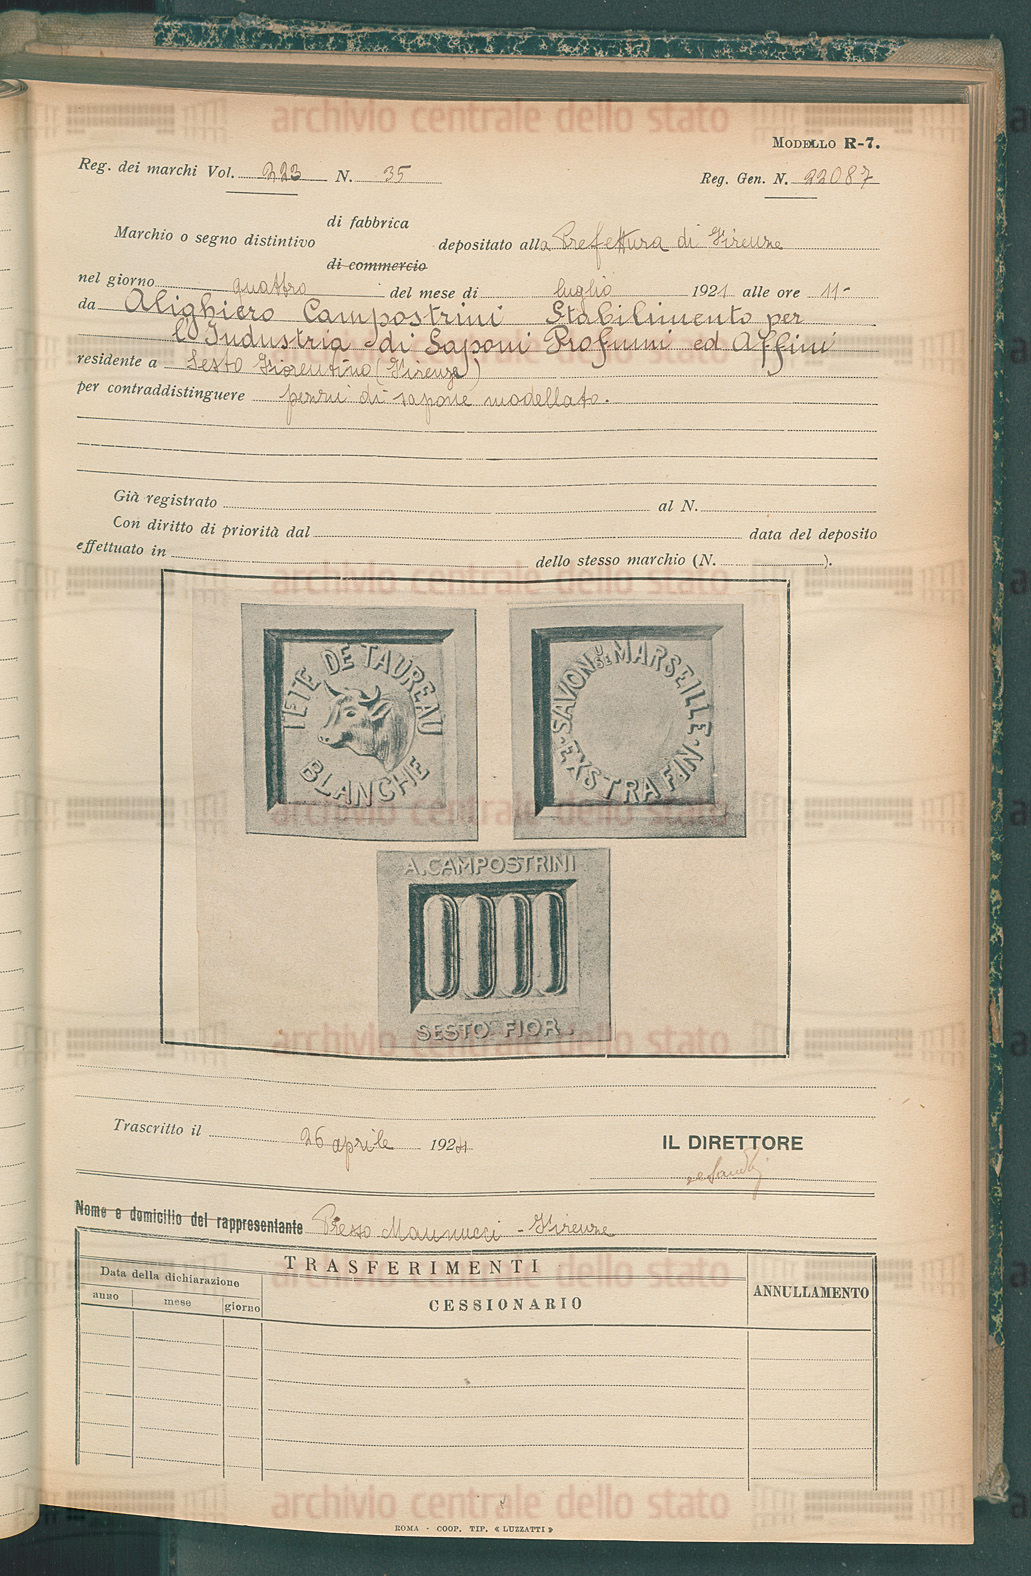 archivio centrale dello stato
MODELLO R-7.
Reg. dei marchi Vol. 223 N. 35
Reg. Gen. N. 22087
Marchio o segno distintivo di fabbrica di commercio depositato alla Prefettura di Firenze
nel giorno quattro del mese di luglio 1921 alle ore 11-
da Alighiero Campostrini Stabilimento per
l'Industria di Saponi Profumi ed Affini
residente a Sesto Fiorentino (Firenze)
per contraddistinguere penni di sapone modellato.
Già registrato al N.
Con diritto di priorità dal data del deposito
effettuato in dello stesso marchio (N. ).
archivio centrale dello stato
TETE DE TAUREAU
BLANCHE
SAVON DE MARSEILLE
EXSTRA FIN
archivio centrale dello stato
A. CAMPOSTRINI
SESTO FIOR.
archivio centrale dello stato
Trascritto il 26 aprile 1924
IL DIRETTORE
Nome e domicilio del rappresentante Presso Mannucci - Firenze
TRASFERIMENTI
Data della dichiarazione
anno mese giorno
CESSIONARIO
ANNULLAMENTO
archivio centrale dello stato
archivio centrale dello stato
ROMA - COOP. TIP. « LUZZATTI »